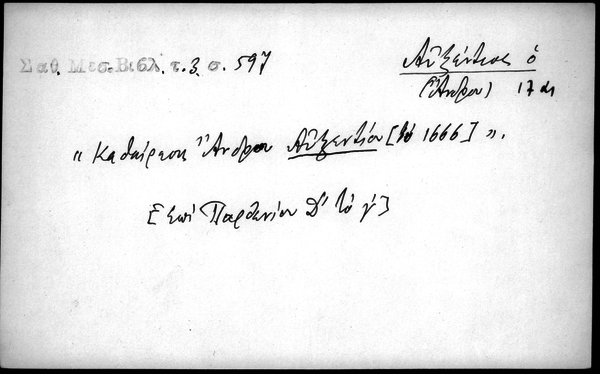 Σαθ. Μεσ. Βιβλ. τ. 3. σ. 597
Αὐξέντιος ὁ
(Ἄνδρου) 17 αι
« Καθαίρεσις Ἄνδρου Αὐξεντίου [τὸ 1666] ».
[Ἐπὶ Παρθενίου Δ' τὸ γ']